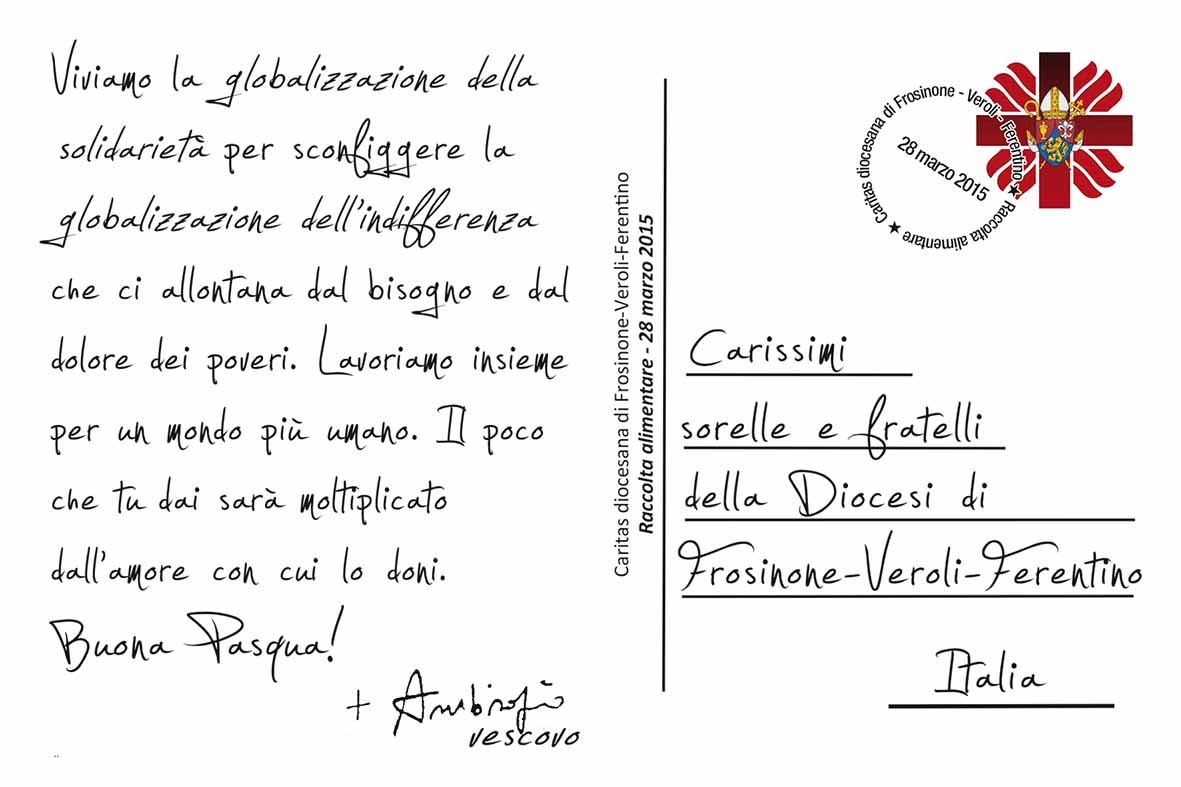 Viviamo la globalizzazione della
solidarietà per sconfiggere la
globalizzazione dell'indifferenza
che ci allontana dal bisogno e dal
dolore dei poveri. Lavoriamo insieme
per un mondo più umano. Il poco
che tu dai sarà moltiplicato
dall'amore con cui lo doni.
Buona Pasqua!
+ Ambrogio
vescovo
Caritas diocesana di Frosinone-Veroli-Ferentino
Raccolta alimentare - 28 marzo 2015
Caritas diocesana di Frosinone - Veroli - Ferentino ★ Raccolta alimentare ★
28 marzo 2015
Carissimi
sorelle e fratelli
della Diocesi di
Frosinone-Veroli-Ferentino
Italia